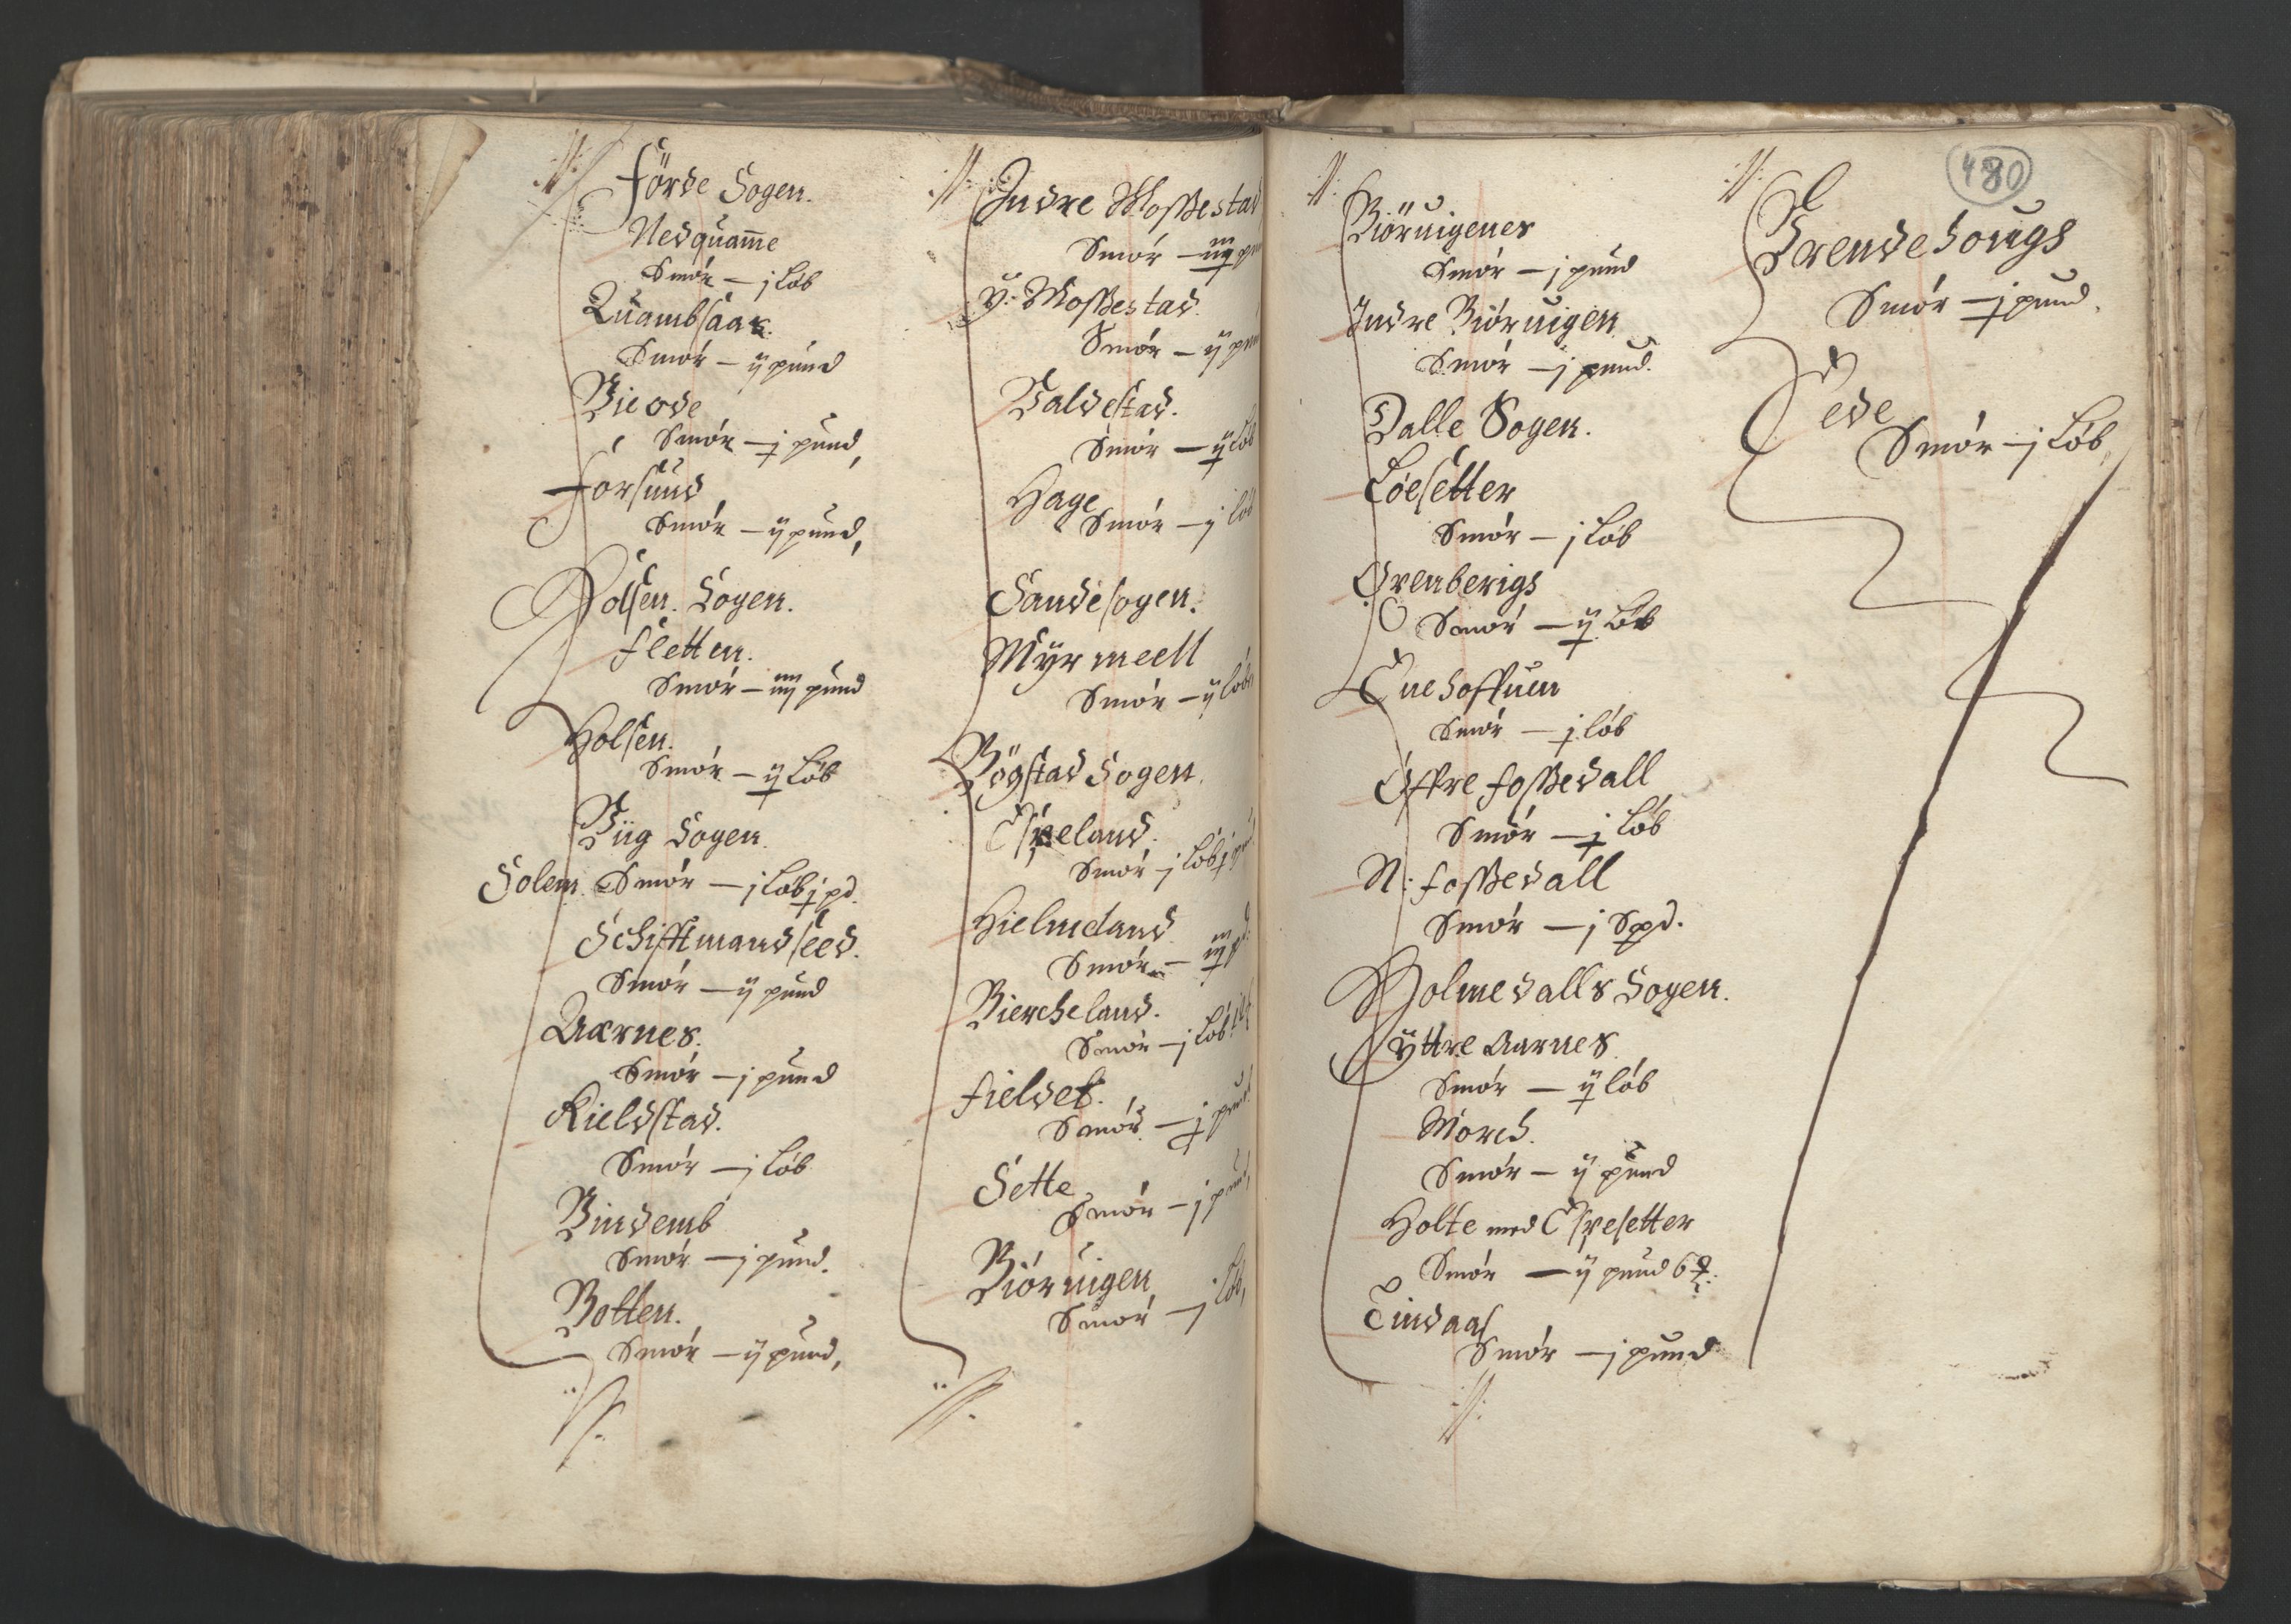 Förde Sogen.
Nedquam̄e
Smör — j Löb
Quambsaas.
Smör — ij pund
Bie ode
Smör — j pund,
Forsund
Smör — ij pund,
Holsen. Sogen.
Fletten.
Smör — iiij pund
Holsen.
Smör — ij Löb
Biig Sogen.
Solem. Smör — j Löb j pd.
Schifftmandseed.
Smör — ij pund
Aarnes.
Smör — j pund
Kieldstad.
Smör — j Löb
Bindemb
Smör — j pund.
Botten.
Smör — ij pund,
Indre Mossestad
Smör — iiij
ÿ: Mossestad.
Smör — ij
Baldestad.
Smör — ij Löb
Hage
Smör — j Löb
Sande sogen.
Mÿrmeell
Smör — ij Löb
Bögstad Sogen.
Espeland.
Smör — j Löb j
Hielmeland
Smör — iij
Biercheland.
Smör — j Löb
Fieldet.
Smör — j pund
Sette
Smör — j pund,
Biöruigen
Smör — j Löb,
480
Biöruigenes
Smör — j pund
Indre Biöruigen
Smör — j pund.
Dalle Sogen.
Löesetter
Smör — j Löb
Orenberigs
Smör — ij Löb
Tuehoffuen
Smör — j löb
Öffre fossedall
Smör — j Löb
N: fossedall
Smör — j Spd.
Holmedalls Sogen.
ÿttre Aarnes
Smör — ij löb
Morch.
Smör — ij pund
Holte med Espesetter
Smör — ij pund 6
Tindaas
Smör — j pund
Trendehougs
Smör — j pund.
Ede
Smör — j Löb,